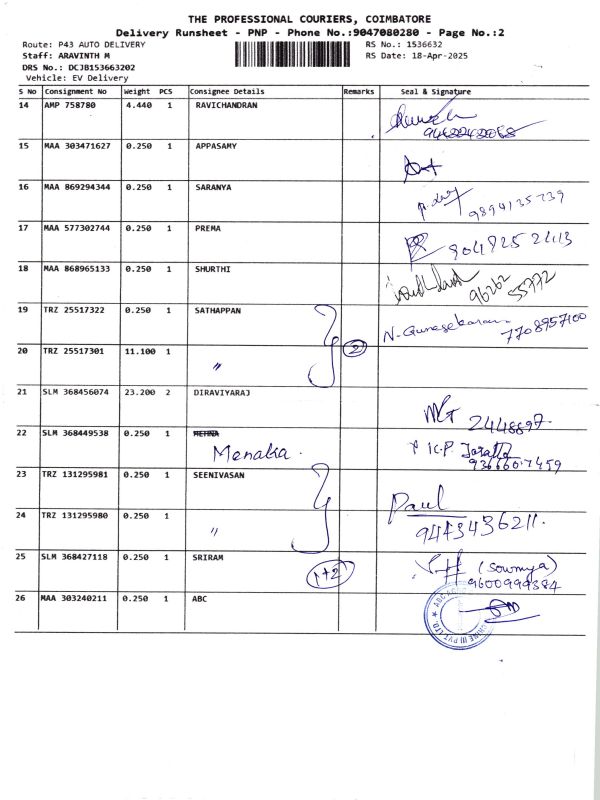 THE PROFESSIONAL COURIERS, COIMBATORE
Delivery Runsheet - PNP - Phone No.:9047080280 - Page No.:2
Route: P43 AUTO DELIVERY RS No.: 1536632
Staff: ARAVINTH M RS Date: 18-Apr-2025
DRS No.: DCJB153663202
Vehicle: EV Delivery
S No Consignment No Weight PCS Consignee Details Remarks Seal & Signature
14 AMP 758780 4.440 1 RAVICHANDRAN
15 MAA 303471627 0.250 1 APPASAMY
16 MAA 869294344 0.250 1 SARANYA 9894135739
17 MAA 577302744 0.250 1 PREMA
18 MAA 868965133 0.250 1 SHURTHI 96262 55772
19 TRZ 25517322 0.250 1 SATHAPPAN N. Gunasekaran 7708957100
20 TRZ 25517301 11.100 1 〃 2
21 SLM 368456074 23.200 2 DIRAVIYARAJ 2448897.
22 SLM 368449538 0.250 1 Menaka. 9366607459
23 TRZ 131295981 0.250 1 SEENIVASAN Paul
24 TRZ 131295980 0.250 1 〃 9443436211.
25 SLM 368427118 0.250 1 SRIRAM 1+2 (Sowmya) 9600999384
26 MAA 303240211 0.250 1 ABC